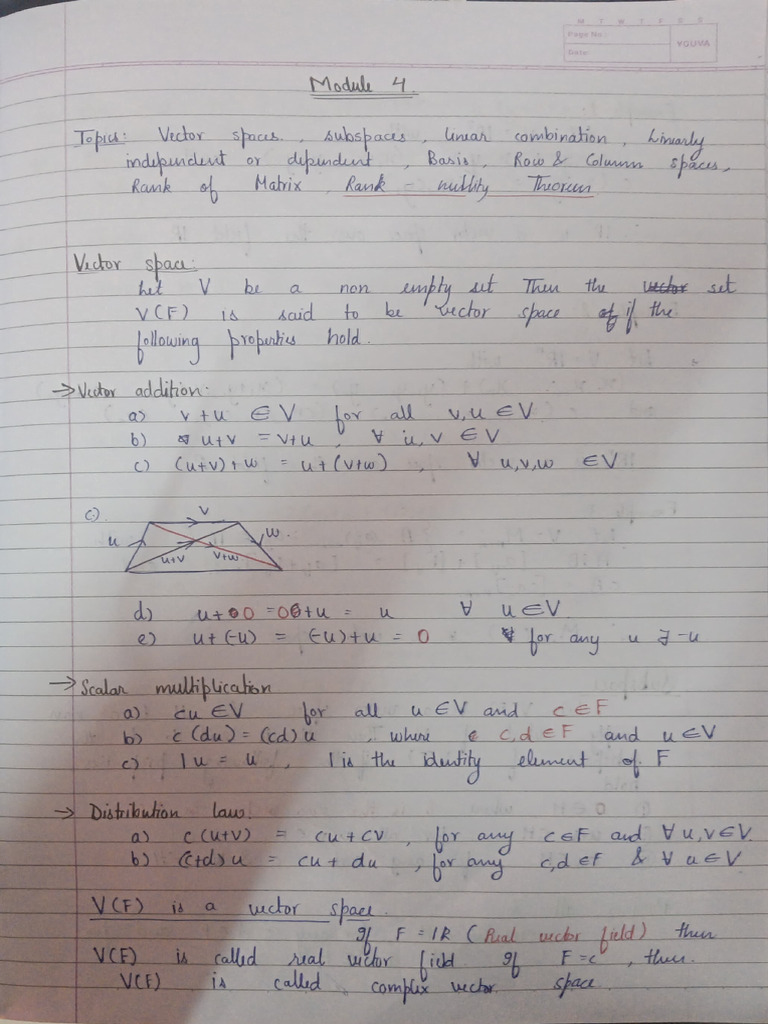 M T W T F S S
Page No.:
Date:
YOUVA
Module 4.
Topics: Vector spaces, subspaces, linear combination, Linearly
independent or dependent, Basis, Row & Column spaces,
Rank of Matrix, Rank - nullity Theorem
Vector space:
Let V be a non empty set Then the set
V(F) is said to be vector space if the
following properties hold.
→ Vector addition.
a) v+u ∈ V for all v,u ∈ V
b) u+v = v+u, ∀ u,v ∈ V
c) (u+v)+w = u+(v+w), ∀ u,v,w ∈V
c)
v
u
w.
u+v
v+w
d) u+0 = 0+u = u ∀ u ∈ V
e) u+(-u) = (-u)+u = 0 for any u ∃ -u
→ Scalar multiplication
a) cu ∈V for all u ∈ V and c ∈ F
b) c(du) = (cd)u, where c,d ∈ F and u ∈ V
c) 1u = u, 1 is the identity element of F
→ Distribution law.
a) c(u+v) = cu+cv, for any c∈F and ∀ u,v∈V.
b) (c+d)u = cu + du, for any c,d ∈F & ∀ u ∈ V
V(F) is a vector space.
If F = IR (Real vector field) then
V(F) is called real vector field If F=c, then.
V(F) is called complex vector space